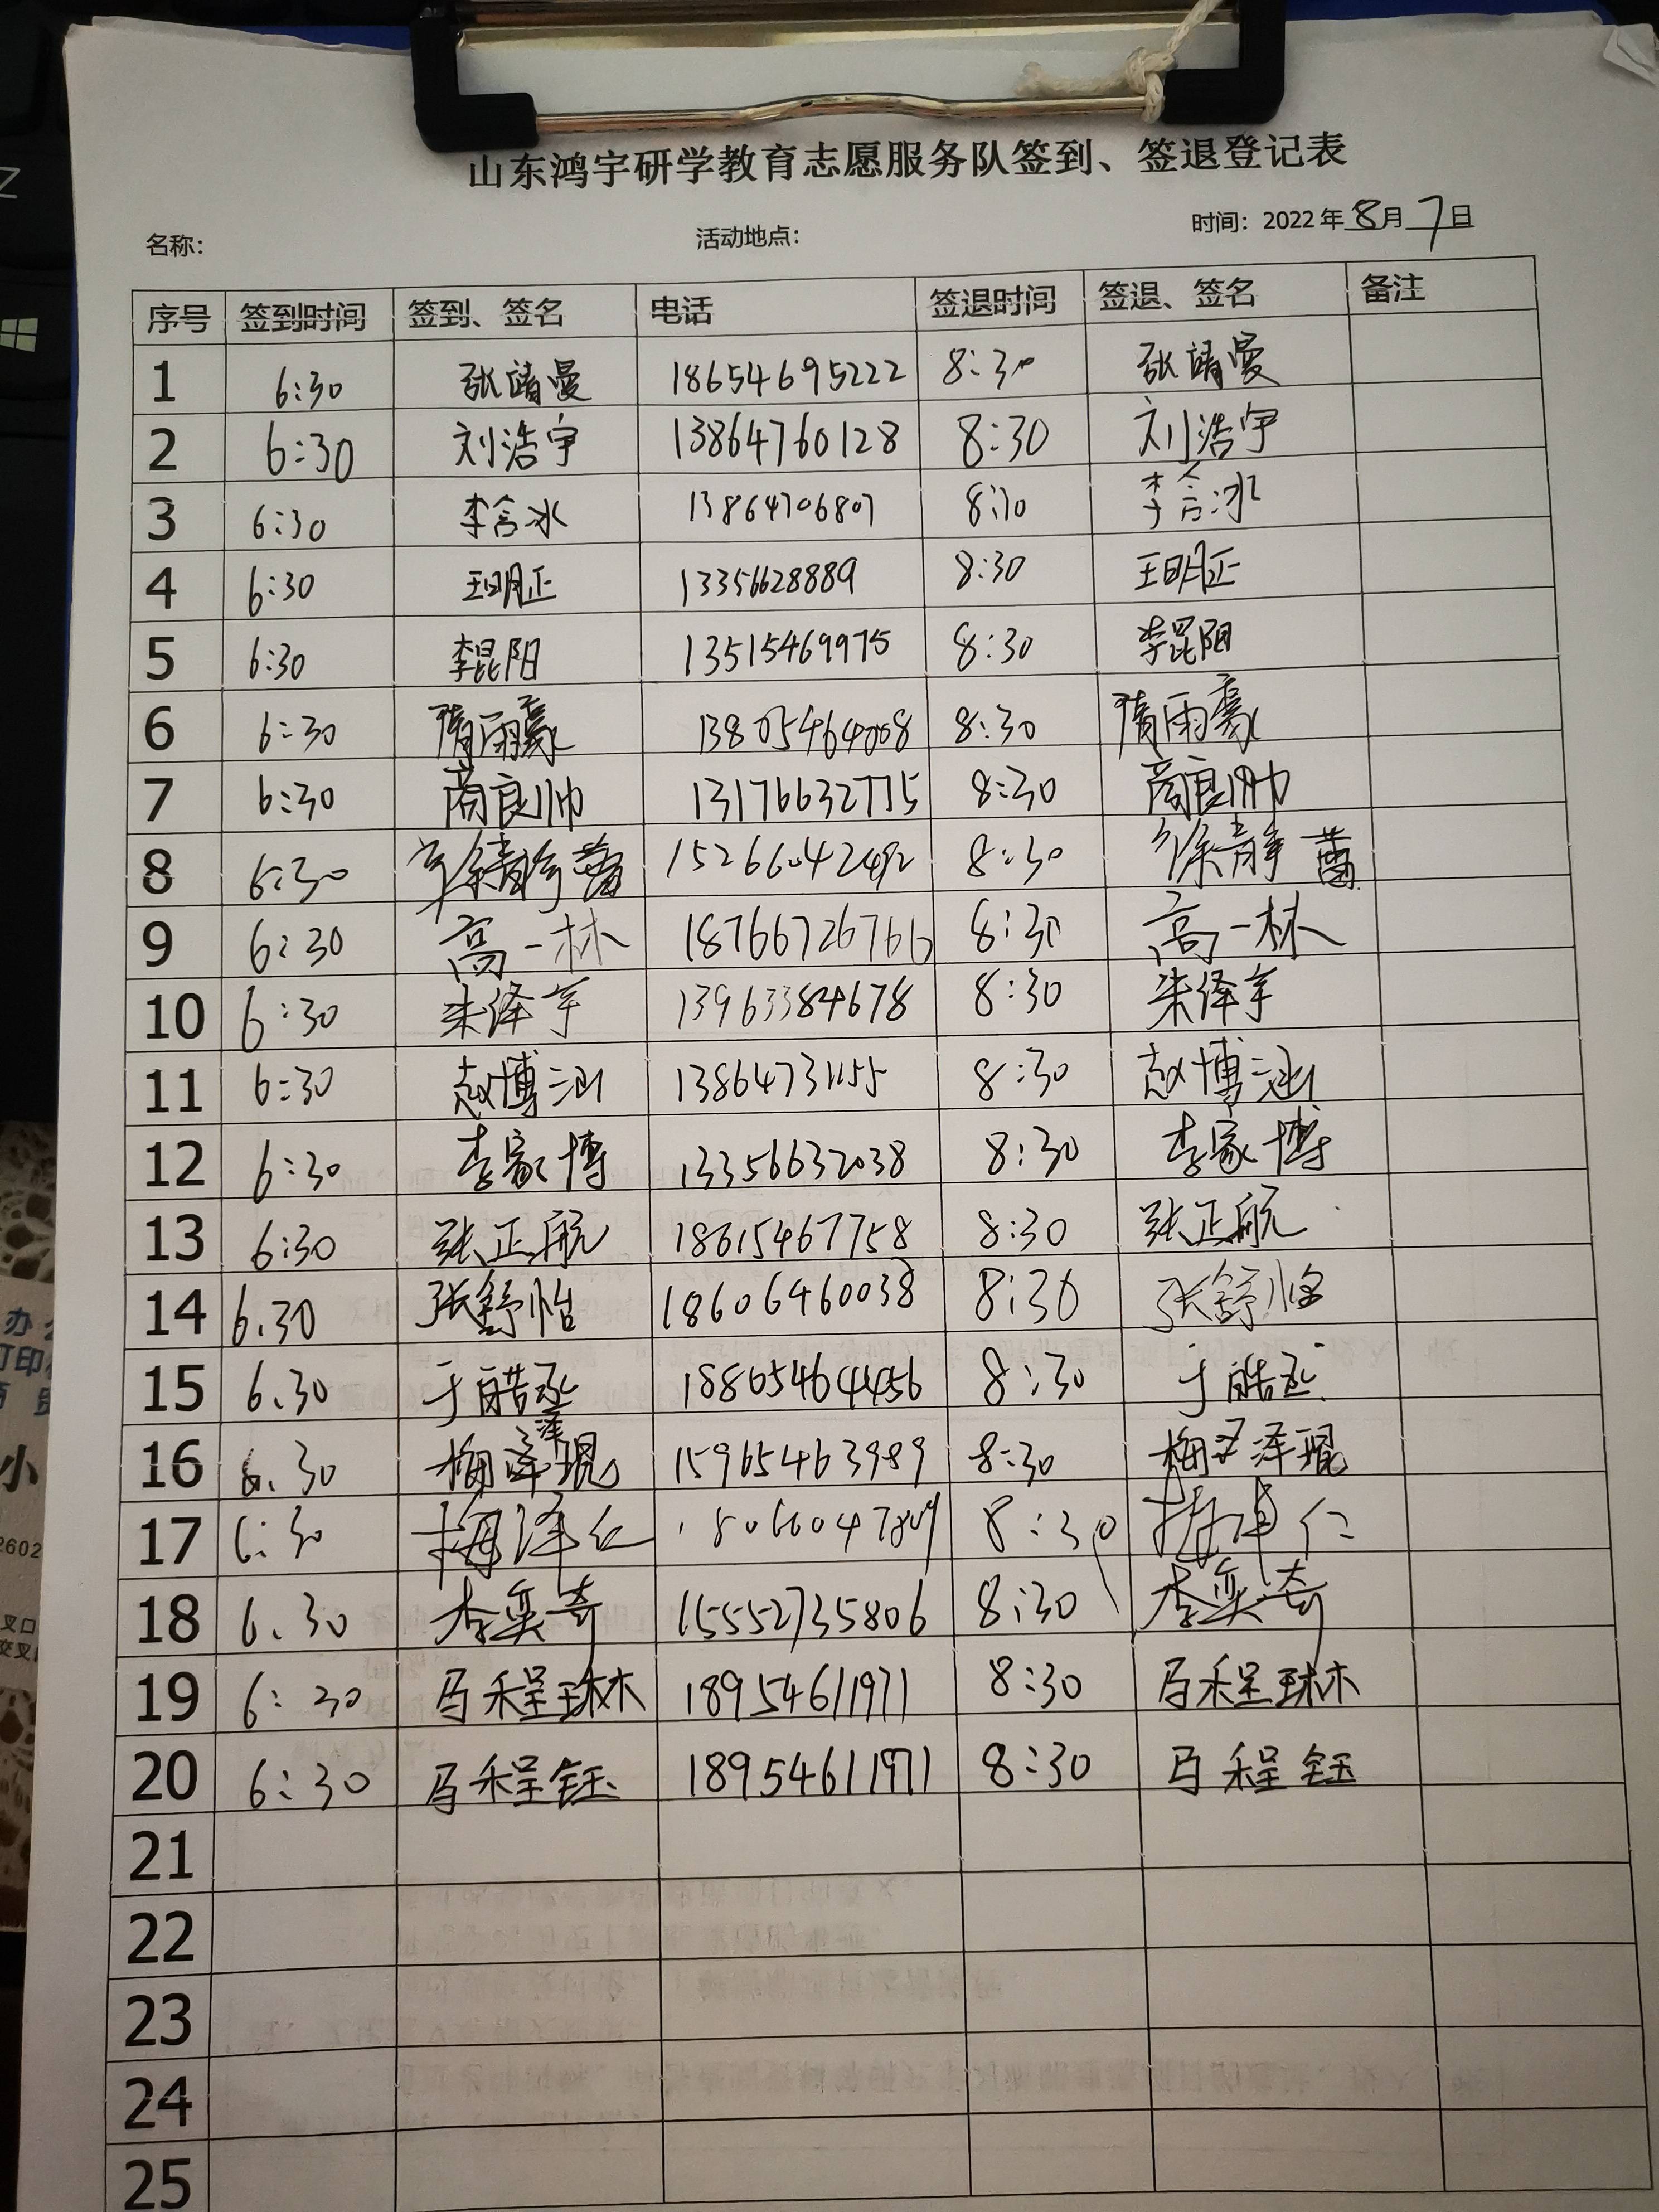 山东鸿宇研学教育志愿服务队签到、签退登记表
名称: 活动地点: 时间: 2022年8月7日
序号 签到时间 签到、签名 电话 签退时间 签退、签名 备注
1 6:30 张靖曼 18654695222 8:30 张靖曼
2 6:30 刘浩宇 13864760128 8:30 刘浩宇
3 6:30 李含冰 13864706807 8:30 李含冰
4 6:30 王明正 13356628889 8:30 王明正
5 6:30 李昆阳 13515469975 8:30 李昆阳
6 6:30 隋雨豪 13805464008 8:30 隋雨豪
7 6:30 商良帅 13176632775 8:30 商良帅
8 6:30 15266042492 8:30 徐静
9 6:30 高一林 18766726766 8:30 高一林
10 6:30 朱泽宇 13963384678 8:30 朱泽宇
11 6:30 赵博涵 13864731155 8:30 赵博涵
12 6:30 李家博 13356632038 8:30 李家博
13 6:30 张正航 18615467758 8:30 张正航
14 6.30 张舒怡 18606460038 8:30 张舒怡
15 6.30 于皓丞 18865464456 8:30 于皓丞
16 6.30 梅泽琨 15965463989 8:30 梅泽琨
17 6:30 梅泽仁 8:30
18 6.30 李奕奇 15552735806 8:30 李奕奇
19 6:30 马程琳 18954611971 8:30 马程琳
20 6:30 马程钰 18954611971 8:30 马程钰
21
22
23
24
25
办
小
2602
叉口